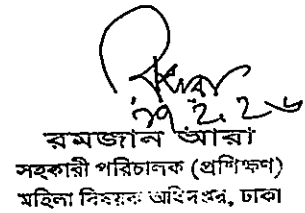 ২৭.২.২৬
রমজান আরা
সহকারী পরিচালক (প্রশিক্ষণ)
মহিলা বিষয়ক অধিদপ্তর, ঢাকা